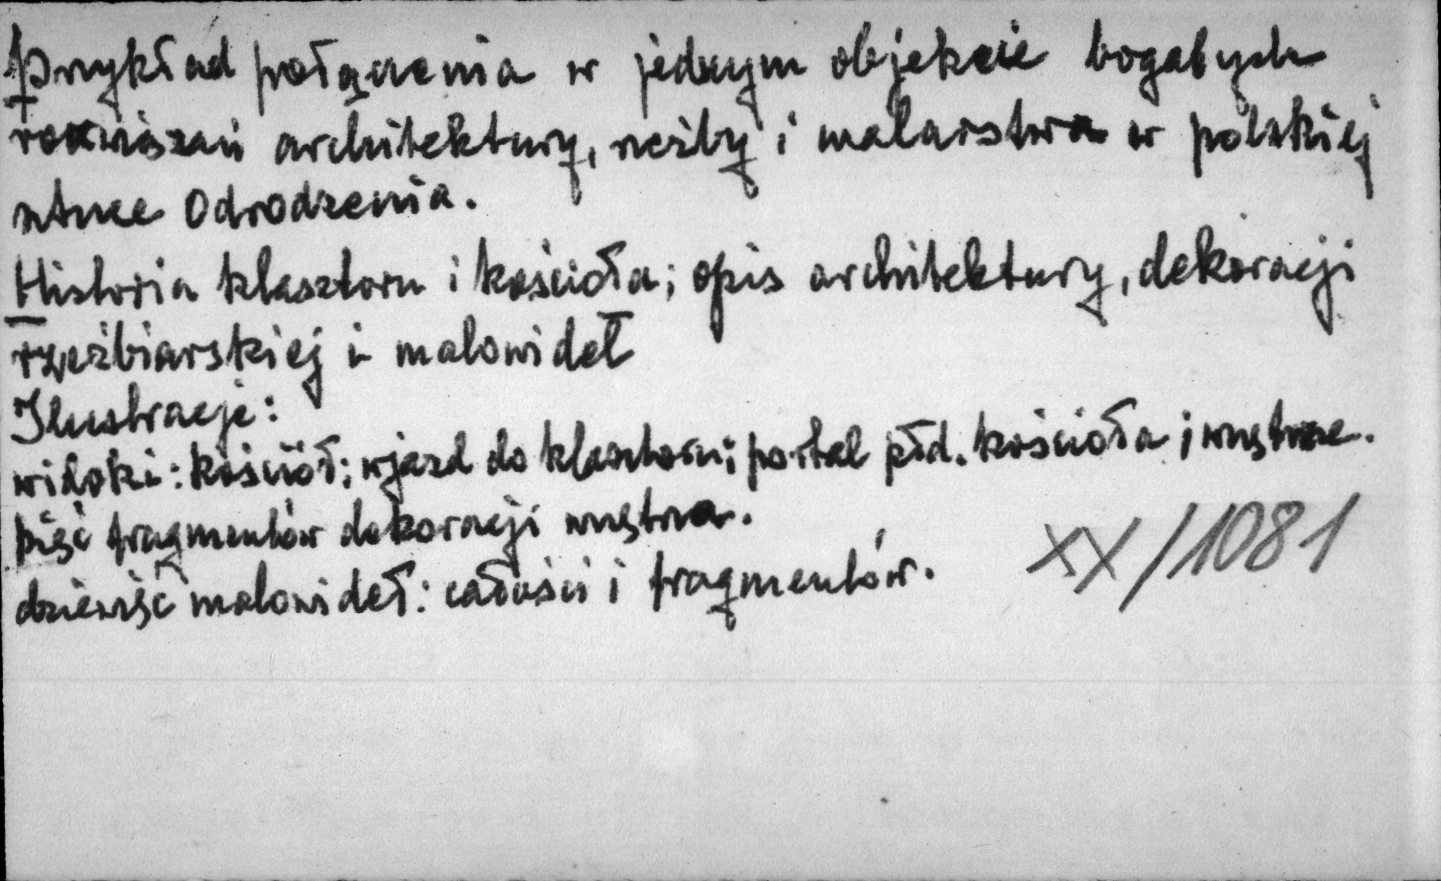 Przykład połączenia w jednym objekcie bogatych
rozwiązań architektury, rzeźby i malarstwa w polskiej
sztuce Odrodzenia.
Historia klasztoru i kościoła; opis architektury, dekoracji
rzeźbiarskiej i malowideł
Ilustracje:
widoki: kościół; wjazd do klasztoru; portal płd. kościoła; wnętrze.
pięć fragmentów dekoracji wnętrza.
dziewięć malowideł: całości i fragmentów.
XX/1081